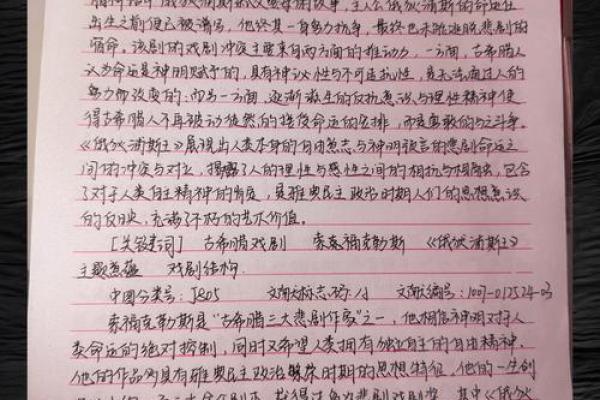 出生之前便已被谱写，他终其一身努力抗争，最终也未能逃脱悲剧的
宿命。该剧的戏剧冲突主要来自两方面的推动力，一方面，古希腊人
认为命运是神明赋予的，具有神认性与不可违抗性，是无法通过人的
努力而改变的；而另一方面，逐渐滋生的反抗意识与理性精神使
得古希腊人不再被动徒然的接受命运的安排，而是勇敢的与之斗争。
《俄狄浦斯王》展现出人类本身的自由意志与神明预言的悲剧命运之
间的冲突与对立，揭露了人的理性与感性之间的相抗与相，包含
了对于人类自主精神的肯定，是雅典民主政治时期人们的思想意识
的反映，充满了不朽的艺术价值。
[关键词] 古希腊戏剧 索福克勒斯 《俄狄浦斯王》
主题意蕴 戏剧结构
中图分类号：J805 文献标志码：A 文献编号：1007-0125
索福克勒斯是“古希腊三大悲剧作家”之一，他相信神明对于人
类命运的绝对控制，同时又希望人类拥有独立自主的自由精神，
他的作品均具有雅典民主政治时期的思想特征，他的一生创